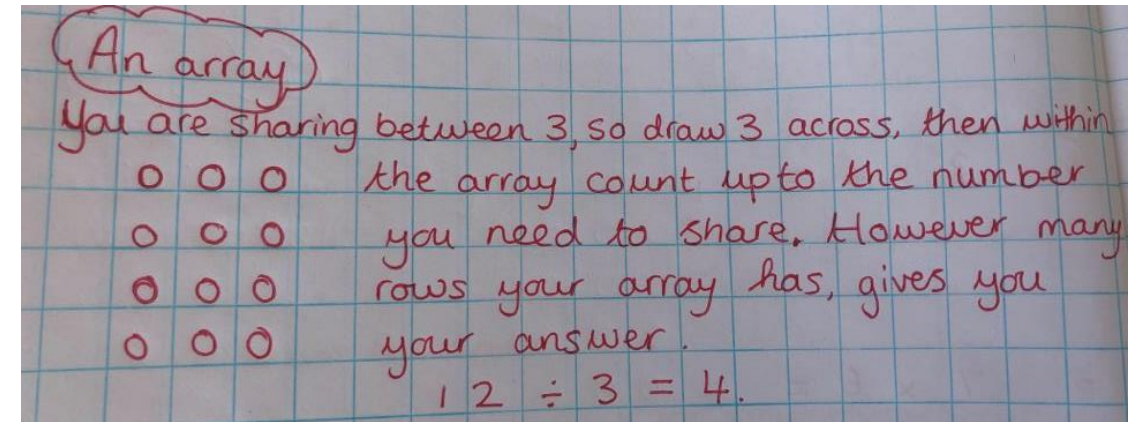 An array
You are sharing between 3, so draw 3 across, then within
the array count up to the number
you need to share. However many
rows your array has, gives you
your answer.
12 ÷ 3 = 4.